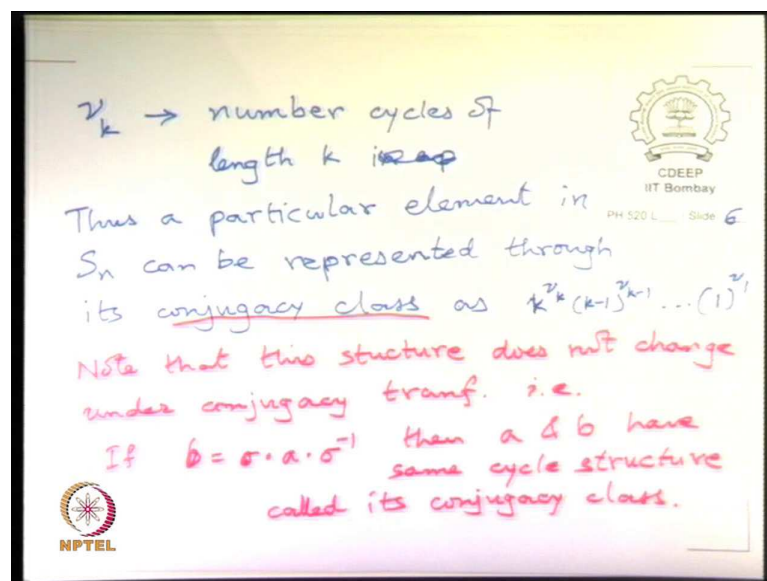 ν_k → number cycles of
length k
CDEEP
IIT Bombay
Thus a particular element in
PH 520 L___ Slide 6
S_n can be represented through
its conjugacy class as k^{ν_k} (k-1)^{ν_{k-1}} ... (1)^{ν_1}
Note that this stucture does not change
under conjugacy transf. i.e.
If b = σ · a · σ^{-1} then a & b have
same cycle structure
called its conjugacy class.
NPTEL